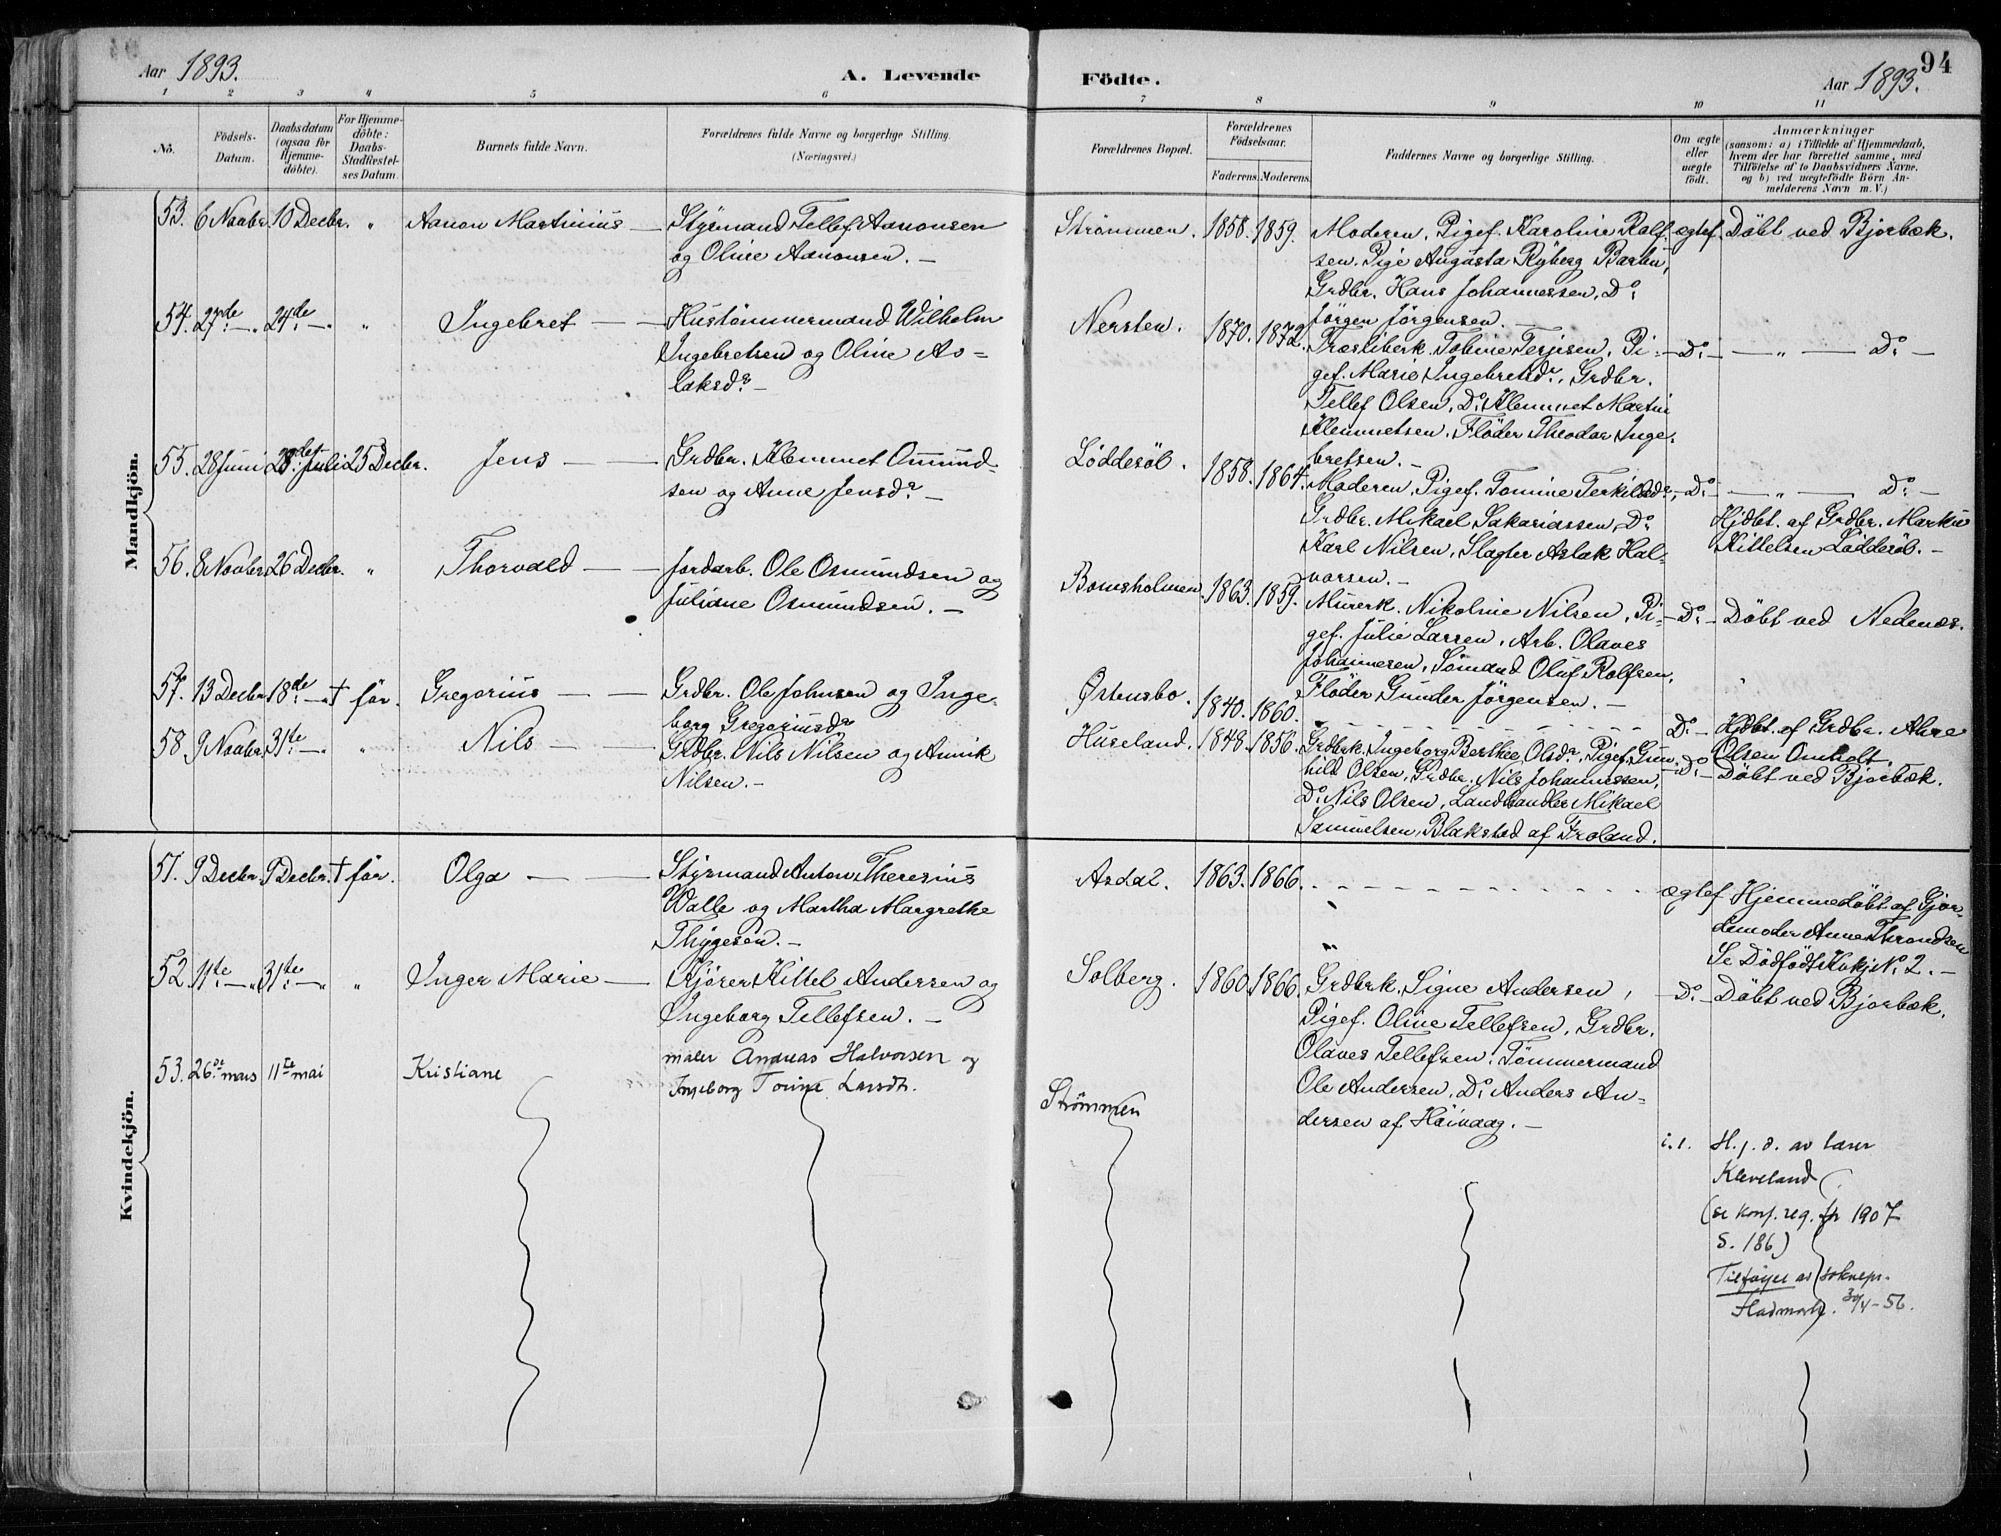 Aar 1893. A. Levende Födte. Aar 1893. 94
1 2 3 4 5 6 7 8 9 10 11
No. Födsels-Datum. Daabsdatum (ogsaa for Hjemmedöbte). For Hjemmedöbte: Daabs-Stadfæstelses Datum. Barnets fulde Navn. Forældrenes fulde Navne og borgerlige Stilling. (Næringsvei.) Forældrenes Bopæl. Forældrenes Födselsaar. Faderens. Moderens. Faddernes Navne og borgerlige Stilling. Om ægte eller uægte födt. Anmærkninger (saasom: a) i Tilfælde af Hjemmedaab, hvem der har forrettet samme, med Tilföielse af to Daabsvidners Navne, og b) ved uægtefödte Börn Anmelderens Navn m. V.)
Mandkjön.
53. 6 Novbr. 10 Decbr. " Aanon Martinius — Styrmand Tellef Aanonsen
og Oline Aanonsen. —
Strömmen. 1858. 1859. Moderen, Pigef. Karoline Rolf-
sen, Pige Augusta Ryberg Barbu,
Grdbr. Hans Johannessen, Do:
Jörgen Jörgensen. —
ægtef. Döbt ved Bjorbæk.
54. 27de — " 24de — " " Ingebret — — Kustömmermand Wilhelm
Ingebretsen og Oline As-
laksda —
Nersten. 1870. 1872. Tobine Terjesen, Pi-
gef. Marie Ingebretsda, Grdbr.
Tellef Olsen, Do: Klemmet Martin
Klemmetsen, Fløder Theodor Inge-
bretsen. —
— Do: — — " — Do: —
55. 28 Juni 28de Juli 25 Decbr. Jens — — Grdbr. Klemmet Osmund-
sen og Anne Jensda —
Löddesöl. 1858. 1864. Moderen, Pigef. Tomine Terkilsda,
Grdbr. Mikael Sakariassen, Do:
Karl Nilsen, Slagter Aslak Hal-
vorsen. —
— Do: — — " — Do: —
Hjdbt. af Grdbr. Markus
Kittelsen Löddesöl. —
56. 8 Novbr. 26 Decbr. " Thorvald — — Jordarb. Ole Osmundsen og
Juliane Osmundsen. —
Bomsholmen. 1863. 1859. Murerk. Nikoline Nilsen, Pi-
gef. Julie Larsen, Arb. Olaves
Johannesen, Sömand Oluf Rolfsen,
Fløder Gunder Jörgensen. —
— Do: — Döbt ved Nedenæs.
57. 13 Decbr. 18de — " † för. Gregorius — — Grdbr. Ole Johnsen og Inge-
borg Gregoriusda
Østensbo. 1840. 1860.
Do: — Hjdbt. af Grdbr. Ahre
Olsen Omholt.
58. 9 Novbr. 31te — " " Nils — — Grdbr. Nils Nilsen og Annik
Nilsen. —
Huseland. 1848. 1856. Grdbrk. Ingeborg Berthee Olsda, Pigef. Gun-
hild Olsen, Grdbr. Nils Johannessen,
Do: Nils Olsen, Landhandler Mikael
Samuelsen, Blakstad af Froland.
— Do: — Döbt ved Bjorbæk.
Kvindekjön.
51. 9 Decbr. 9 Decbr. † för. Olga — — Styrmand Anton Theresius
Walle og Martha Margrethe
Thygesen. —
Asdal. 1863. 1866.
ægtef Hjemmedöbt af Gjor-
demoder Anne Throndsen
Se Dödfödt Kvkj No: 2. —
52. 11te — " 31te — " " Inger Marie — Kjörer Kittel Andersen og
Ingeborg Tellefsen. —
Solberg. 1860. 1866. Grdbrk. Signe Andersen,
Pigef. Oline Tellefsen, Grdbr.
Olaves Tellefsen, Tömmermand
Ole Andersen, Do: Anders An-
dersen af Höivaag. —
— Do: — Döbt ved Bjorbæk.
53. 26de mars 11te mai Kristiane maler Andreas Halvorsen og
Ingeborg Torine Larsdt.
Strømmen
H. j. d. av lærer
Kleveland
(se konf. reg. fr 1907
S. 186)
Tilføyet av soknepr.
30/4-56.